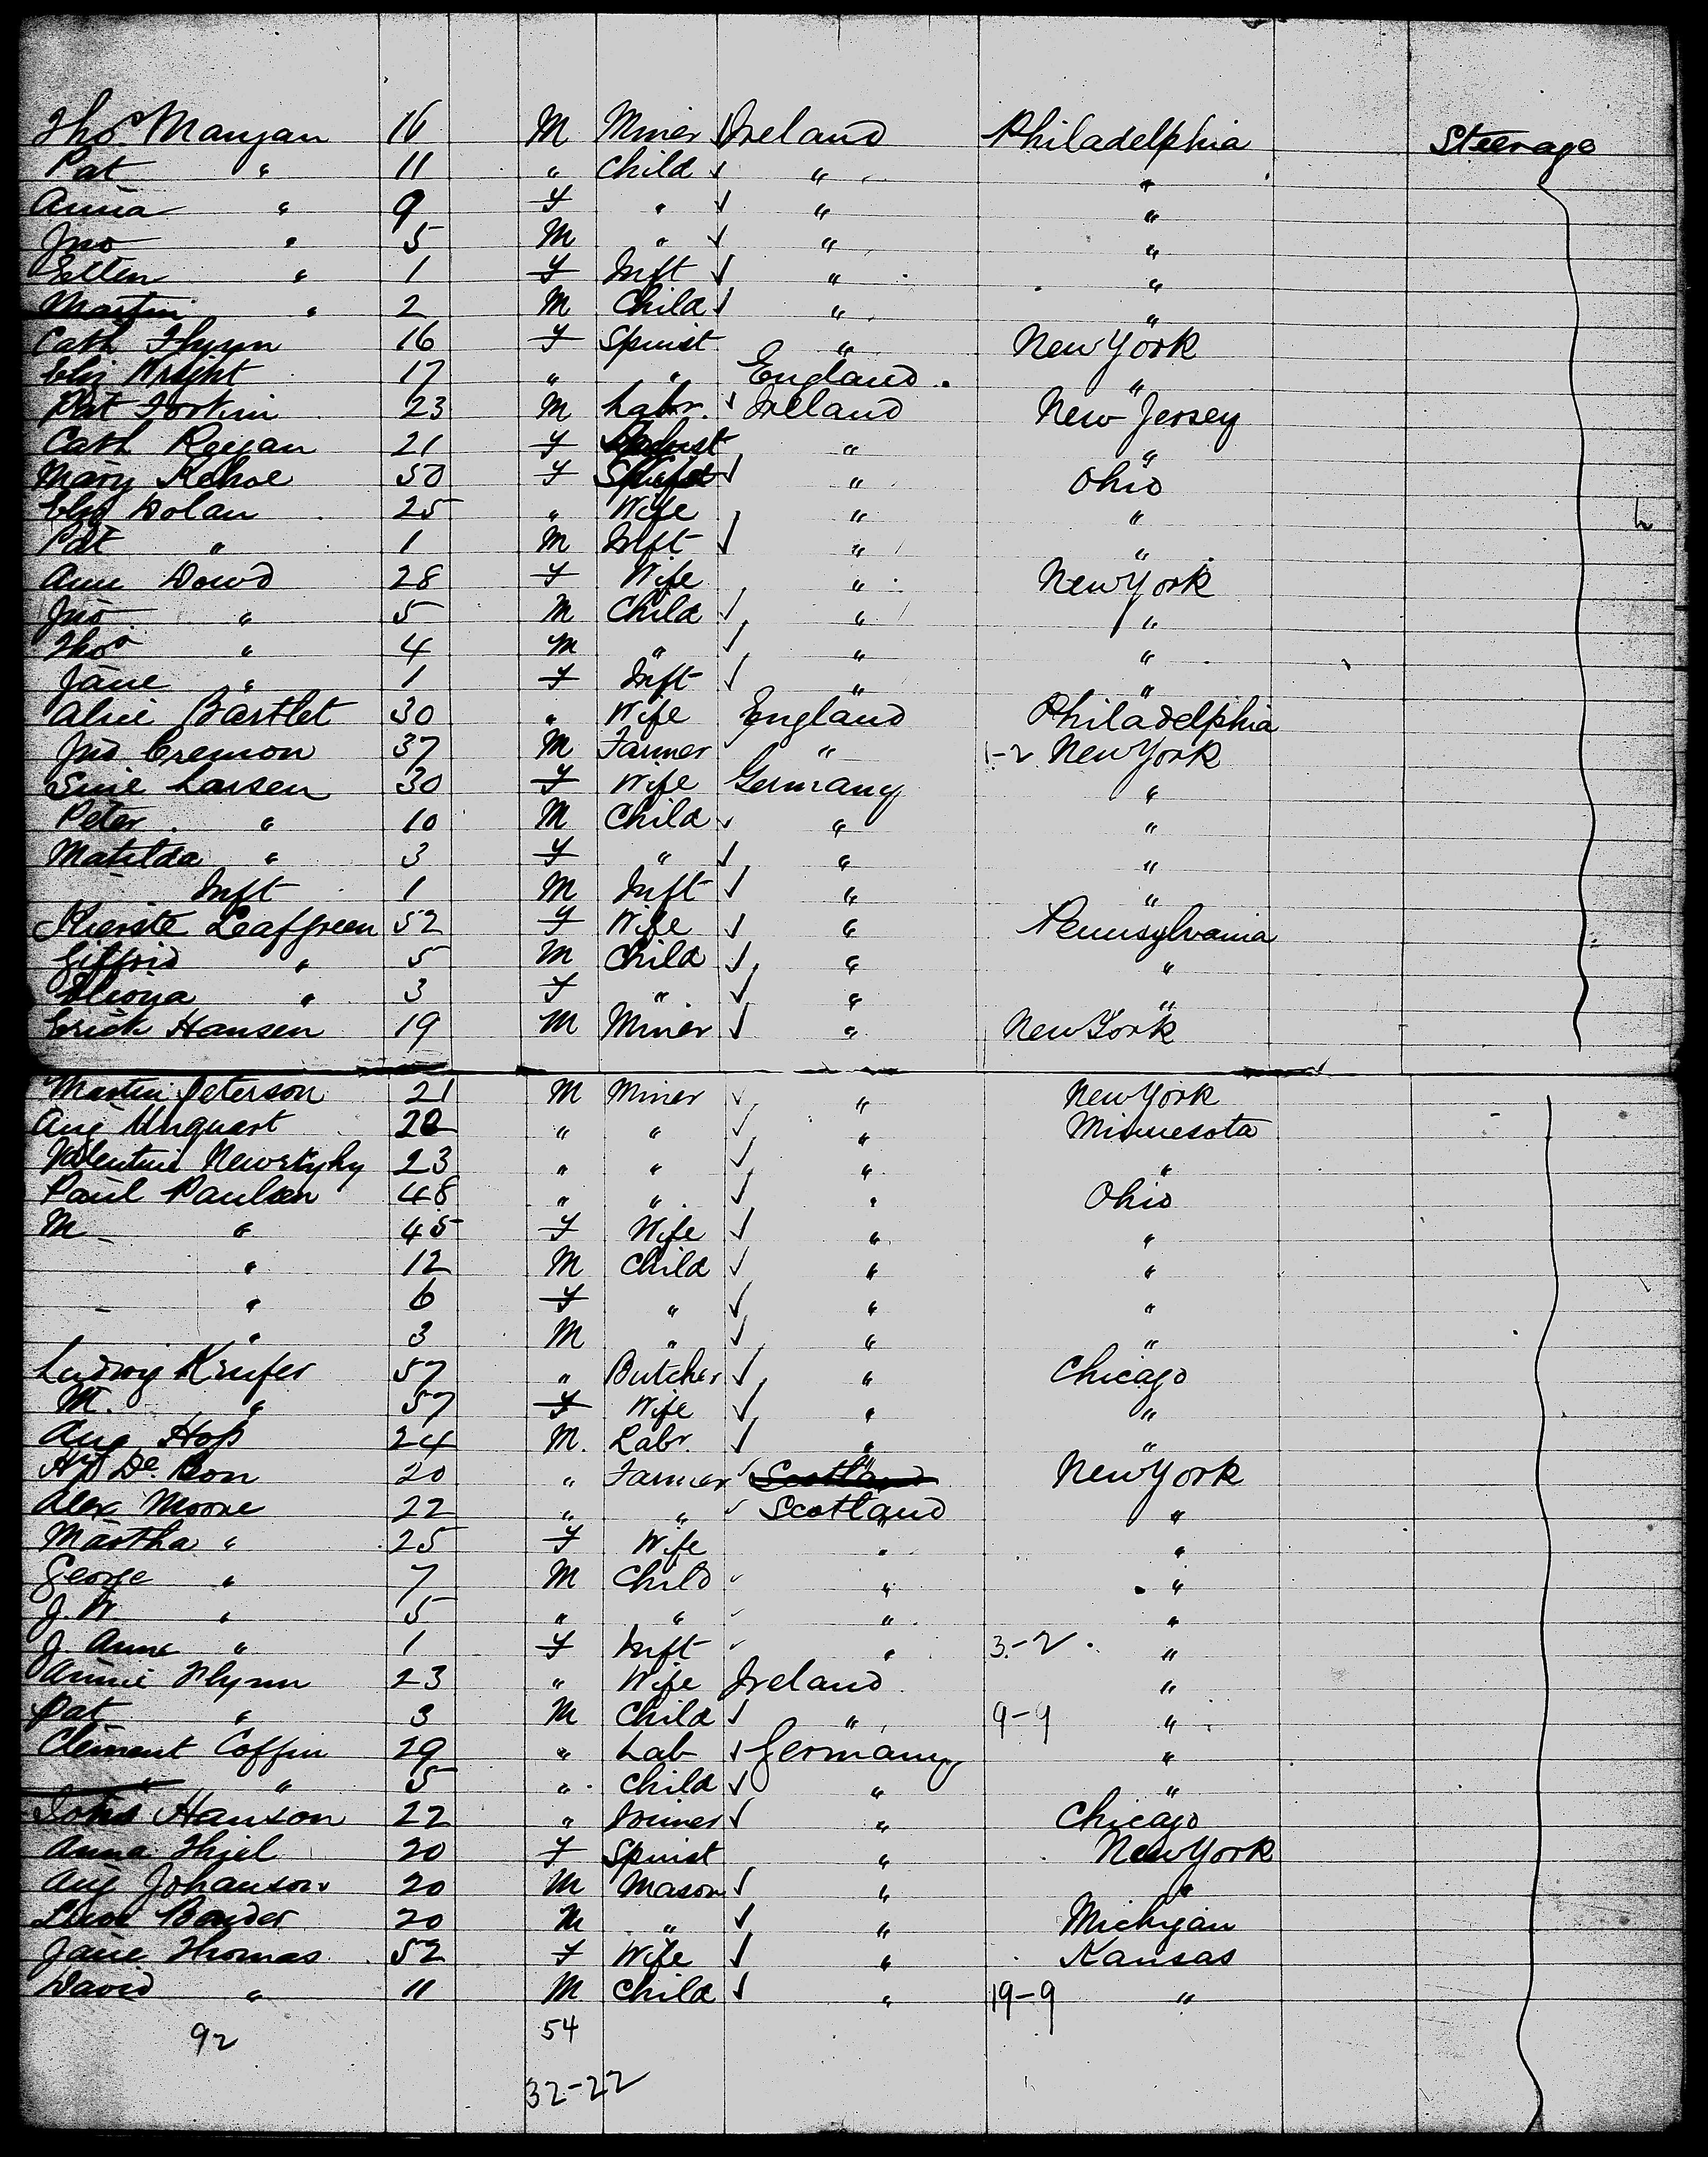 Thos. Mangan 16 M Miner Ireland Philadelphia Steerage
Pat " 11 " Child " "
Anna " 9 F " " "
Jno " 5 M " " "
Ellen " 1 F Inft " "
Martin " 2 M Child " "
Cath Flynn 16 F Spinst " New York
Eliz Wright 17 " " England "
Pat Forkin 23 M Labr. Ireland New Jersey
Cath Regan 21 F " "
Mary Kehoe 50 F " Ohio
Eliz Dolan 25 " Wife " "
Pat " 1 M Inft " "
Ann Dowd 28 F Wife " New York
Jno " 5 M Child " "
Thos " 4 M " " "
Jane " 1 F Inft " "
Alice Bartlet 30 " Wife England Philadelphia
Jno Cremon 37 M Farmer " 1-2 New York
Sine Larsen 30 F Wife Germany "
Peter " 10 M Child " "
Matilda " 3 F " " "
Inft 1 M Inft " "
Kierste Leafgreen 52 F Wife " Pennsylvania
" 5 M Child " "
" 3 F " " "
Erick Hansen 19 M Miner " New York
Martin Peterson 21 M Miner " New York
Aug Unquart " " " Minnesota
Valentine 23 " " " "
Paul Paulsen 48 " " " Ohio
M " 45 F Wife " "
" 12 M Child " "
" 6 F " " "
" 3 M " " "
Ludwig Krufer 57 " Butcher " Chicago
M. " 57 F Wife " "
Aug Hop 24 M. Labr. " "
Hy De Bon 20 " Farmer Scotland New York
Alex Moore 22 " " Scotland "
Martha " 25 F Wife " "
George " 7 M Child " "
J. W " 5 " " " "
J. Anne " 1 F Inft " 3-2 "
Annie Flynn 23 " Wife Ireland "
Pat " 3 M Child " 9-9 "
Clement Coffin 29 " Lab Germany "
" " 5 " Child " "
John Hanson 22 " " Chicago
Anna Thiel 20 F Spinst " New York
Aug Johanson 20 M Mason " "
20 M " " Michigan
Jane Thomas 52 F Wife " Kansas
David " 11 M Child " 19-9 "
92 54
32-22